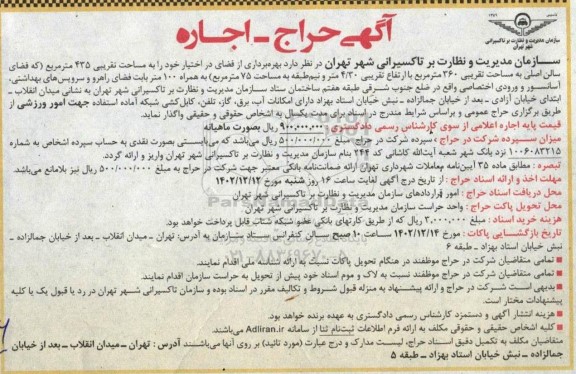 آگهی حراج - اجاره
تاسیس ۱۳۷۱
سازمان مدیریت و نظارت بر تاکسیرانی
شهر تهران
سازمان مدیریت و نظارت بر تاکسیرانی شهر تهران در نظر دارد بهره‌برداری از فضای در اختیار خود را به مساحت تقریبی ۴۳۵ مترمربع (که فضای
سالن اصلی به مساحت تقریبی ۳۶۰ مترمربع با ارتفاع تقریبی ۴/۳۰ متر و نیم‌طبقه به مساحت ۷۵ مترمربع) به همراه ۱۰۰ متر بابت فضای راهرو و سرویس‌های بهداشتی،
آسانسور و ورودی اختصاصی واقع در ضلع جنوب شرقی طبقه هفتم ساختمان ستاد سازمان مدیریت و نظارت بر تاکسیرانی شهر تهران به نشانی میدان انقلاب -
ابتدای خیابان آزادی - بعد از خیابان جمالزاده - نبش خیابان استاد بهزاد دارای امکانات آب، برق، گاز، تلفن، کابل کشی شبکه آماده استفاده جهت امور ورزشی از
طریق برگزاری حراج عمومی و براساس شرایط مندرج در اسناد برای مدت یکسال به اشخاص حقوقی و حقیقی واگذار نماید.
قیمت پایه اجاره اعلامی از سوی کارشناس رسمی دادگستری ۹۰۰/۰۰۰/۰۰۰ ریال بصورت ماهیانه
میزان سپرده شرکت در حراج: سپرده شرکت در حراج مبلغ ۵۰۰/۰۰۰/۰۰۰ ریال می‌باشد که می‌بایستی بصورت نقدی به حساب سپرده اشخاص به شماره
۱۰۰۶۰۸۳۲۱۵ نزد بانک شهر شعبه آیت‌الله کاشانی کد ۲۴۴ بنام سازمان مدیریت و نظارت بر تاکسیرانی شهر تهران واریز و ارائه گردد.
تبصره: مطابق ماده ۳۵ آیین‌نامه معاملات شهرداری تهران ارائه ضمانت‌نامه بانکی معتبر جهت شرکت در حراج به مبلغ ۵۰۰/۰۰۰/۰۰۰ ریال نیز بلامانع می‌باشد.
مهلت اخذ و ارائه اسناد حراج: از تاریخ درج آگهی لغایت ساعت ۱۶ روز شنبه مورخ ۱۴۰۲/۱۲/۱۲
محل دریافت اسناد حراج: امور قراردادهای سازمان مدیریت و نظارت بر تاکسیرانی شهر تهران
محل تحویل پاکت حراج: واحد حراست سازمان مدیریت و نظارت بر تاکسیرانی شهر تهران
هزینه خرید اسناد: مبلغ ۳/۰۰۰/۰۰۰ ریال که از طریق کارتهای بانکی عضو شبکه شتاب قابل پرداخت خواهد بود.
تاریخ بازگشایی پاکات: مورخ ۱۴۰۲/۱۲/۱۴ ساعت ۱۰ صبح سالن کنفرانس ستاد سازمان به آدرس: تهران - میدان انقلاب - بعد از خیابان جمالزاده -
نبش خیابان استاد بهزاد - طبقه ۶
تمامی متقاضیان شرکت در حراج موظفند در هنگام تحویل پاکات نسبت به ارائه شناسه ملی اقدام نمایند.
تمامی متقاضیان شرکت در حراج موظفند نسبت به لاک و موم اسناد خود پیش از تحویل به حراست سازمان اقدام نمایند.
بدیهی است شرکت در حراج و ارائه پیشنهاد به منزله قبول شروط و تکالیف مقرر در اسناد بوده و سازمان تاکسیرانی شهر تهران در رد یا قبول یک یا کلیه
پیشنهادات مختار است.
هزینه انتشار آگهی و دستمزد کارشناس رسمی دادگستری به عهده برنده خواهد بود.
کلیه اشخاص حقیقی و حقوقی مکلف به ارائه فرم اطلاعات ثبت‌نام ثنا از سامانه Adliran.ir می‌باشند
متقاضیان مکلف به تکمیل دقیق اسناد حراج، لیست مدارک و درج عبارت (مورد تائید) بر روی آنها می‌باشند آدرس: تهران - میدان انقلاب - بعد از خیابان
جمالزاده - نبش خیابان استاد بهزاد - طبقه ۵